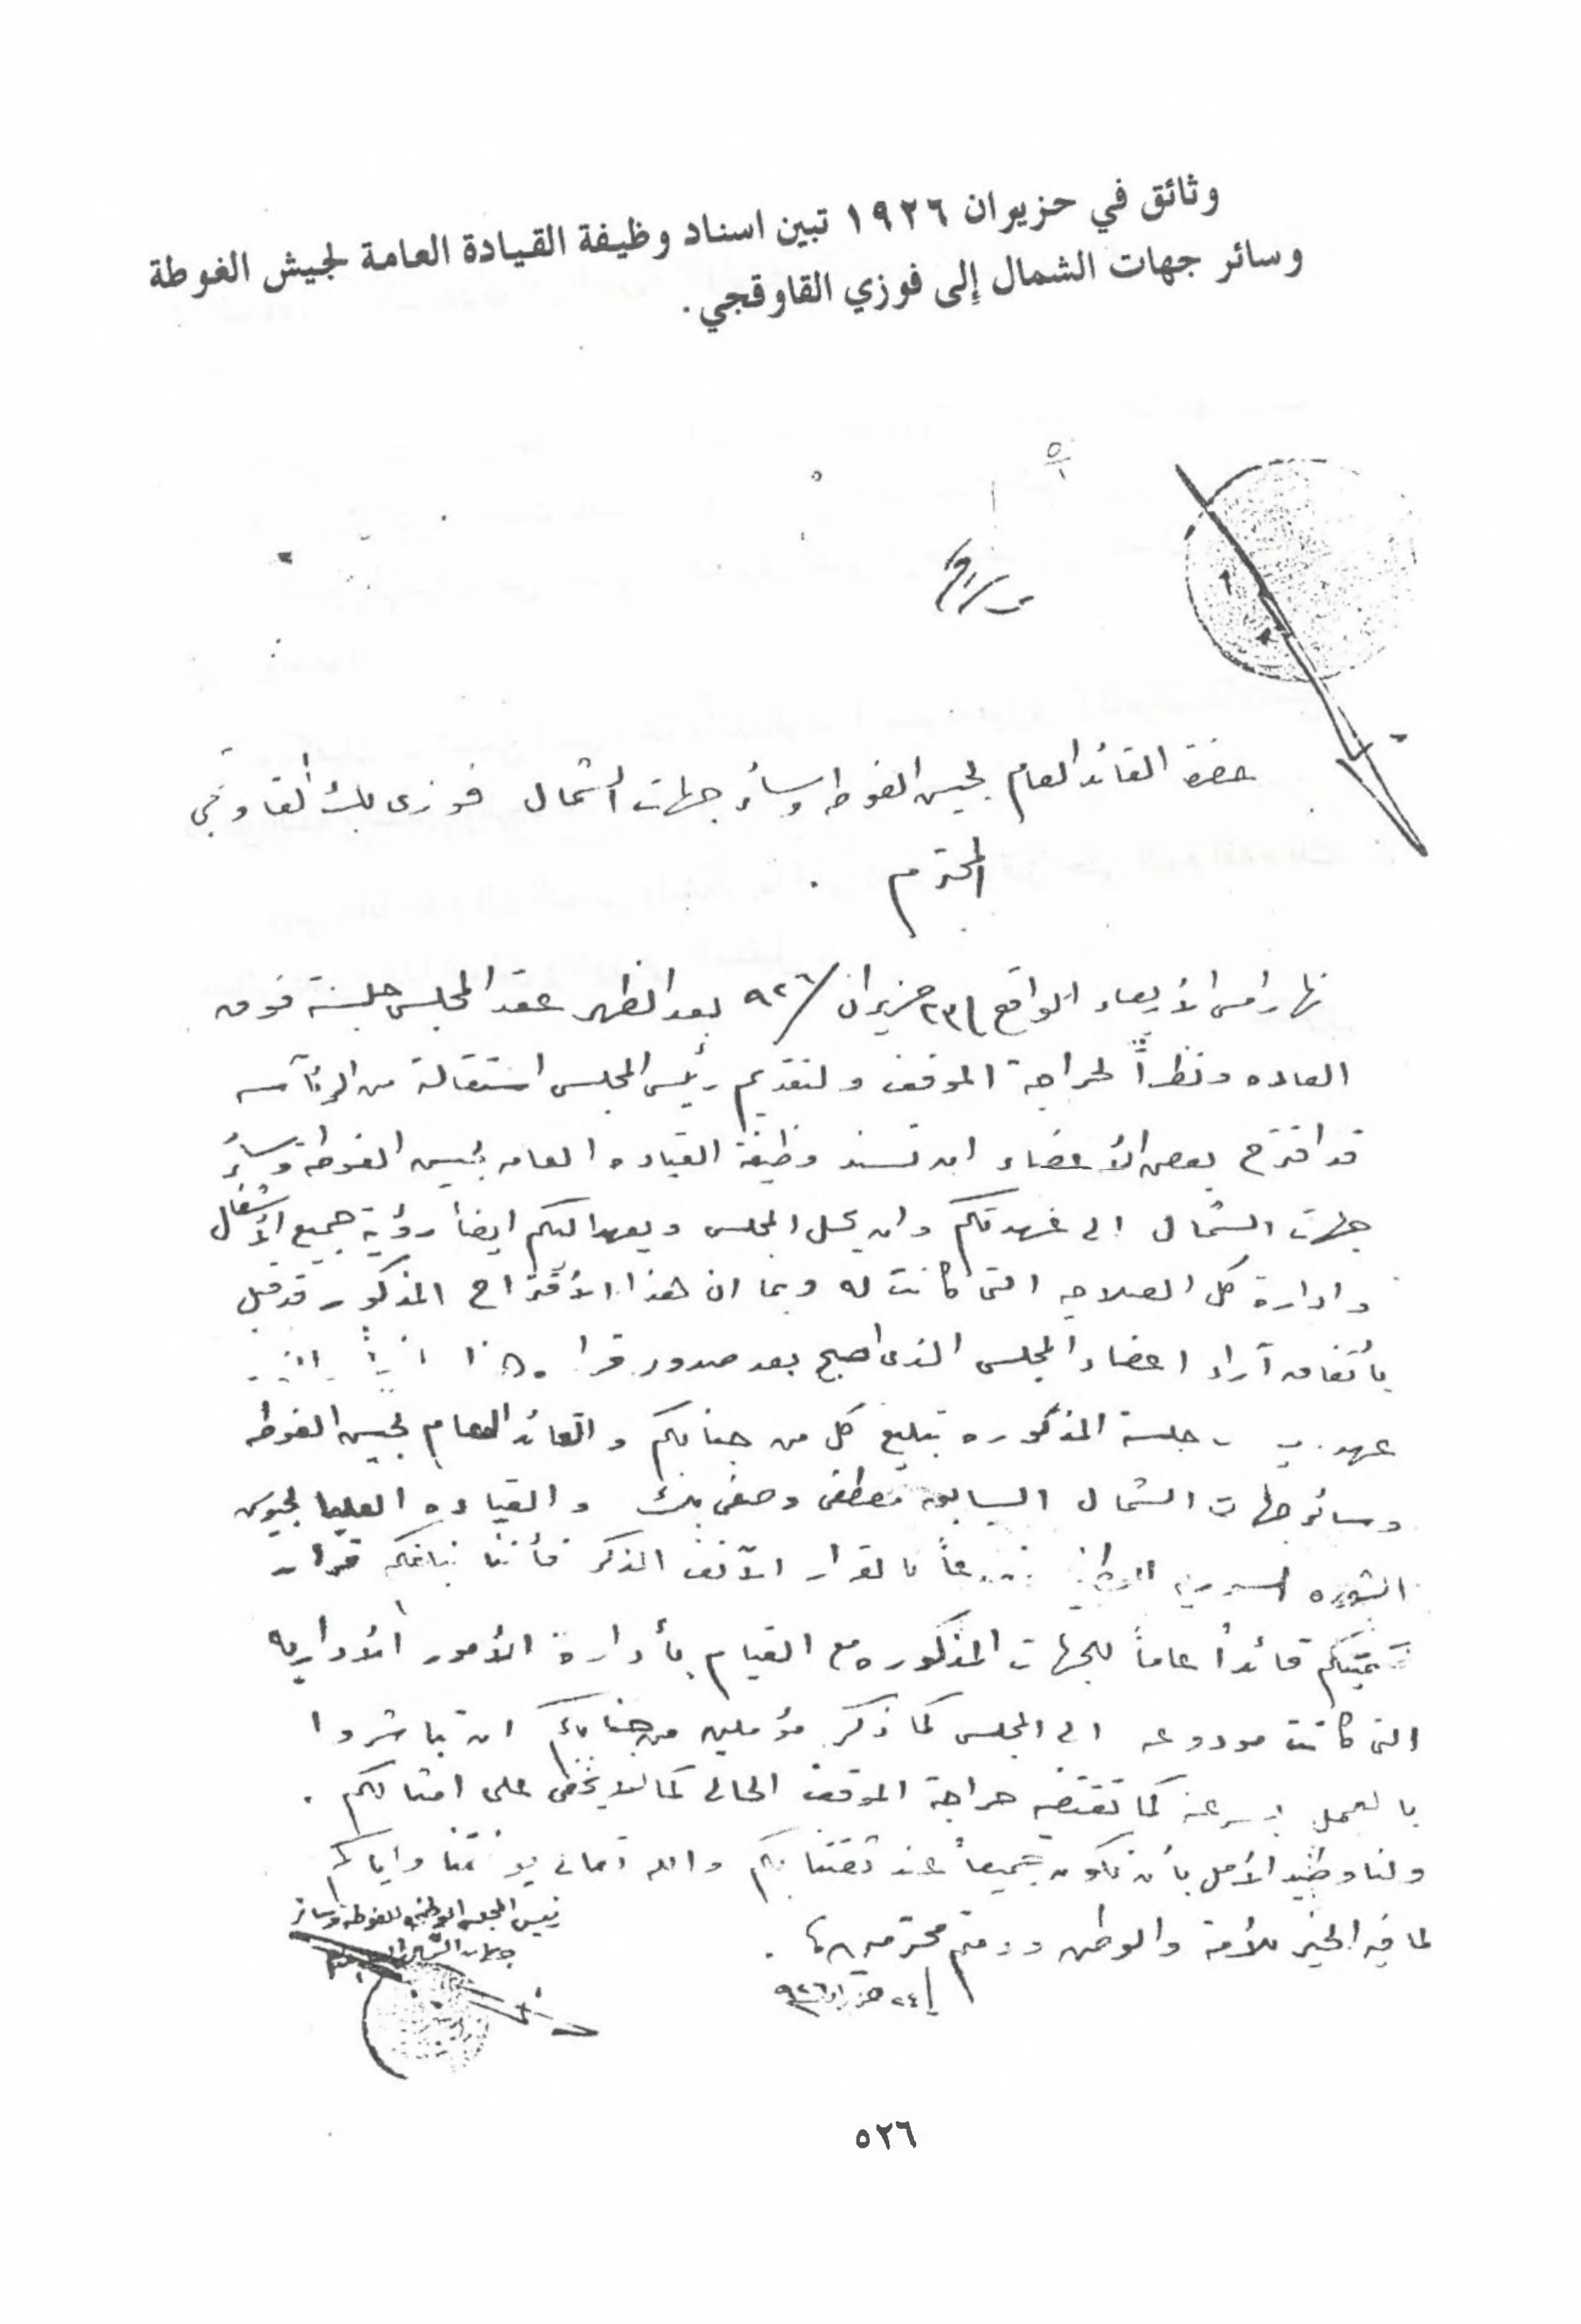 وثائق في حزيران ١٩٢٦ تبين اسناد وظيفة القيادة العامة لجيش الغوطة
وسائر جهات الشمال إلى فوزي القاوقجي .
حضرة القائد العام لجيش الغوطه وسائر جهات الشمال فوزي بك القاوقجي
المحترم .
نهار امس الأربعاء الواقع ٢٣ حزيران ٩٢٦ بعد الظهر عقد المجلس جلسة فوق
العاده ونظراً لحراجة الموقف ولتقديم رئيس المجلس استقالة من الرئآسه
قد اقترح بعض الأعضاء ان تسند وظيفة القياده العامه لجيش الغوطه وسائر
جهات الشمال الى عهدتكم وان يحل المجلس ويعهد اليكم ايضاً رؤية جميع الأشغال
وادارة كل الصلاحيه التى كانت له وبما ان هذا الأقتراح المذكور قد قبل
بأتفاق آراء اعضاء المجلس الذى اصبح بعد صدور قراره هذا
جلسة المذكوره تبليغ كل من جنابكم والقائد العام لجيش الغوطه
وسائر جهات الشمال السابق مصطفى وصفى بك والقياده العليا لجيوش
الثوره بالقرار الآنف الذكر فأننا نبلغكم قرار
قائداً عاماً للجهات المذكوره مع القيام بأدارة الأمور الأداريه
التى كانت مودوعه الى المجلس كما ذكر مؤملين من جنابكم ان تباشروا
بالعمل بسرعة كما تقتضيه حراجة الموقف الحالى كما لا يخفى على امثالكم .
ولنا وطيد الأمل بأن تكون جميعاً عند ثقتنا بكم والله تعالى يوفقنا واياكم
لما فيه الخير للأمة والوطن ودمتم محترمين .
٢٤ حزيران ٩٢٦
رئيس المجلس الوطني للغوطة وسائر
جهات الشمال
٥٢٦